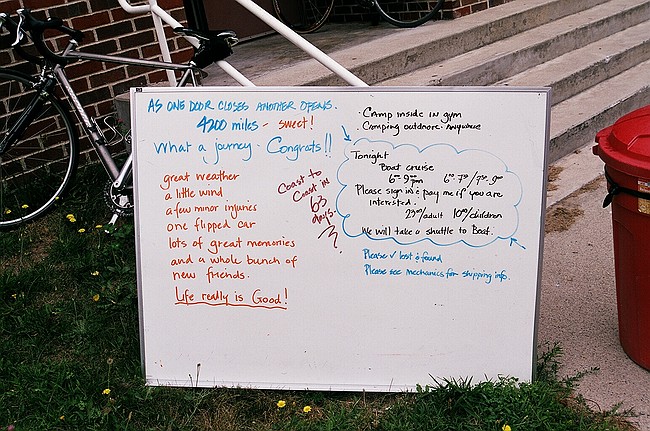 AS ONE DOOR CLOSES ANOTHER OPENS.
4200 miles - sweet!
What a journey - Congrats!!
great weather
a little wind
a few minor injuries
one flipped car
lots of great memories
and a whole bunch of
new friends.
Life really is Good!
Coast to
Coast in
63
days.
· Camp inside in gym
· Camping outdoors - Anywhere
Tonight
Boat cruise
6-9pm
Please sign in & pay me if you are
intersted.
/adult /children
We will take a shuttle to Boat.
Please ✓ lost & found
Please see mechanics for shipping info.